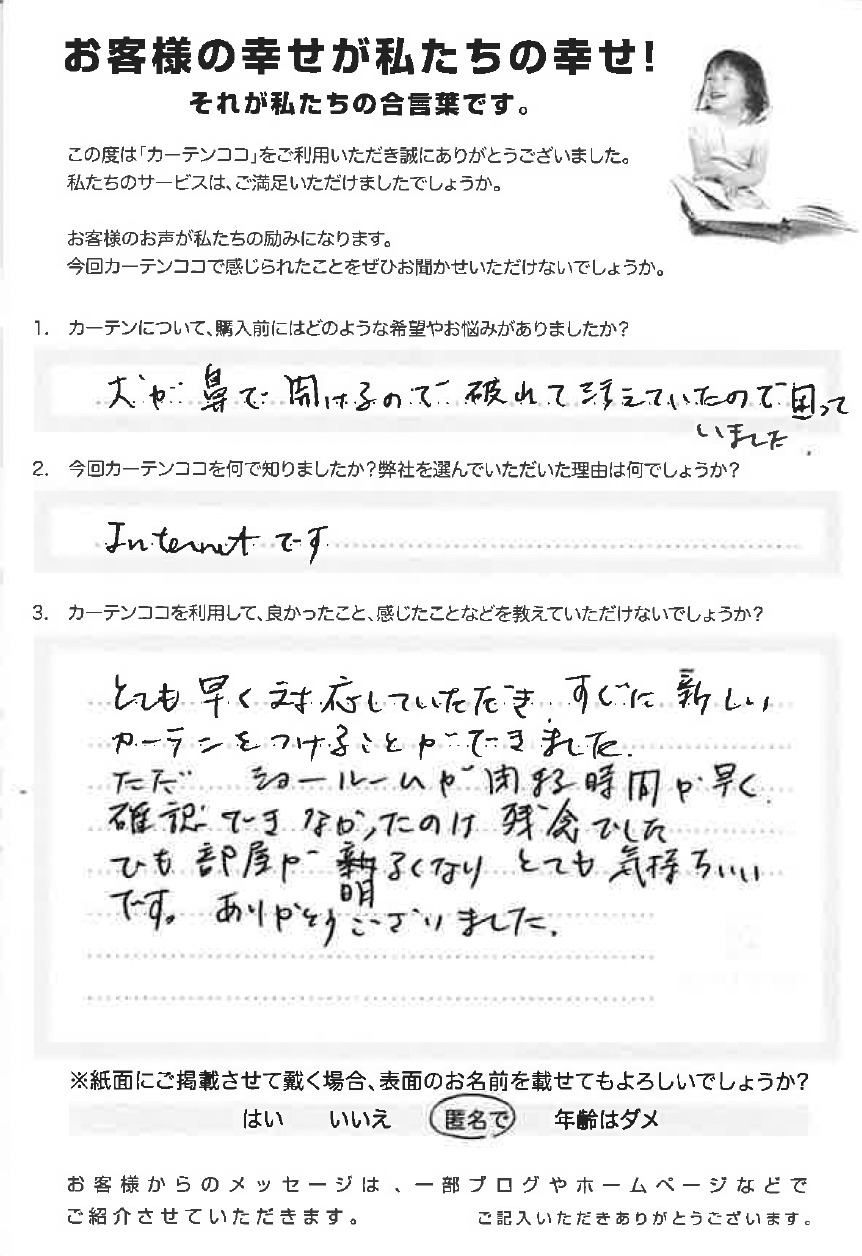 お客様の幸せが私たちの幸せ!
それが私たちの合言葉です。
この度は「カーテンココ」をご利用いただき誠にありがとうございました。
私たちのサービスは、ご満足いただけましたでしょうか。
お客様のお声が私たちの励みになります。
今回カーテンココで感じられたことをぜひお聞かせいただけないでしょうか。
1. カーテンについて、購入前にはどのような希望やお悩みがありましたか?
犬が鼻で開けるので破れて
いたので困って
いました.
2. 今回カーテンココを何で知りましたか?弊社を選んでいただいた理由は何でしょうか?
Internetです
3. カーテンココを利用して、良かったこと、感じたことなどを教えていただけないでしょうか?
とても早く対応していただき、すぐに新しい
カーテンをつけることができました.
ただ ショールームが閉まる時間が早く
確認できなかったのは残念でした
でも部屋が明るくなりとても気持ちいい
です。ありがとうございました.
※紙面にご掲載させて戴く場合、表面のお名前を載せてもよろしいでしょうか?
はい いいえ 匿名で 年齢はダメ
お客様からのメッセージは、一部ブログやホームページなどで
ご紹介させていただきます。 ご記入いただきありがとうございます。